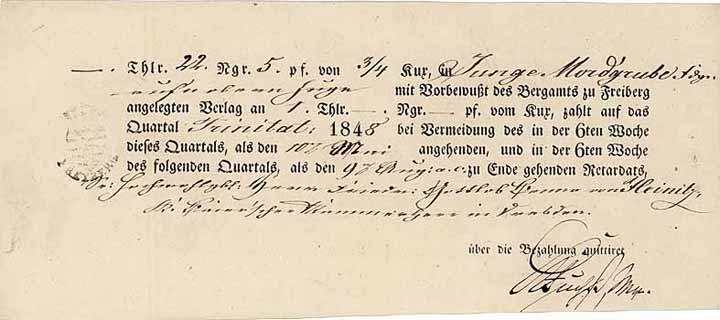 —. Thlr. 22. Ngr. 5. pf. von 3/4 Kux, in Junge Mordgrube Fdgr.
mit Vorbewußt des Bergamts zu Freiberg
angelegten Verlag an 1. Thlr. —. Ngr. —. pf. vom Kux, zahlt auf das
Quartal Trinitat: 1848 bei Vermeidung des in der 6ten Woche
dieses Quartals, als den Mai angehenden, und in der 6ten Woche
des folgenden Quartals, als den 9t Aug: a. c. zu Ende gehenden Retardats,
Herr Gottlob Benno von Heinitz,
Kammerherr in Dresden.
über die Bezahlung quittiret